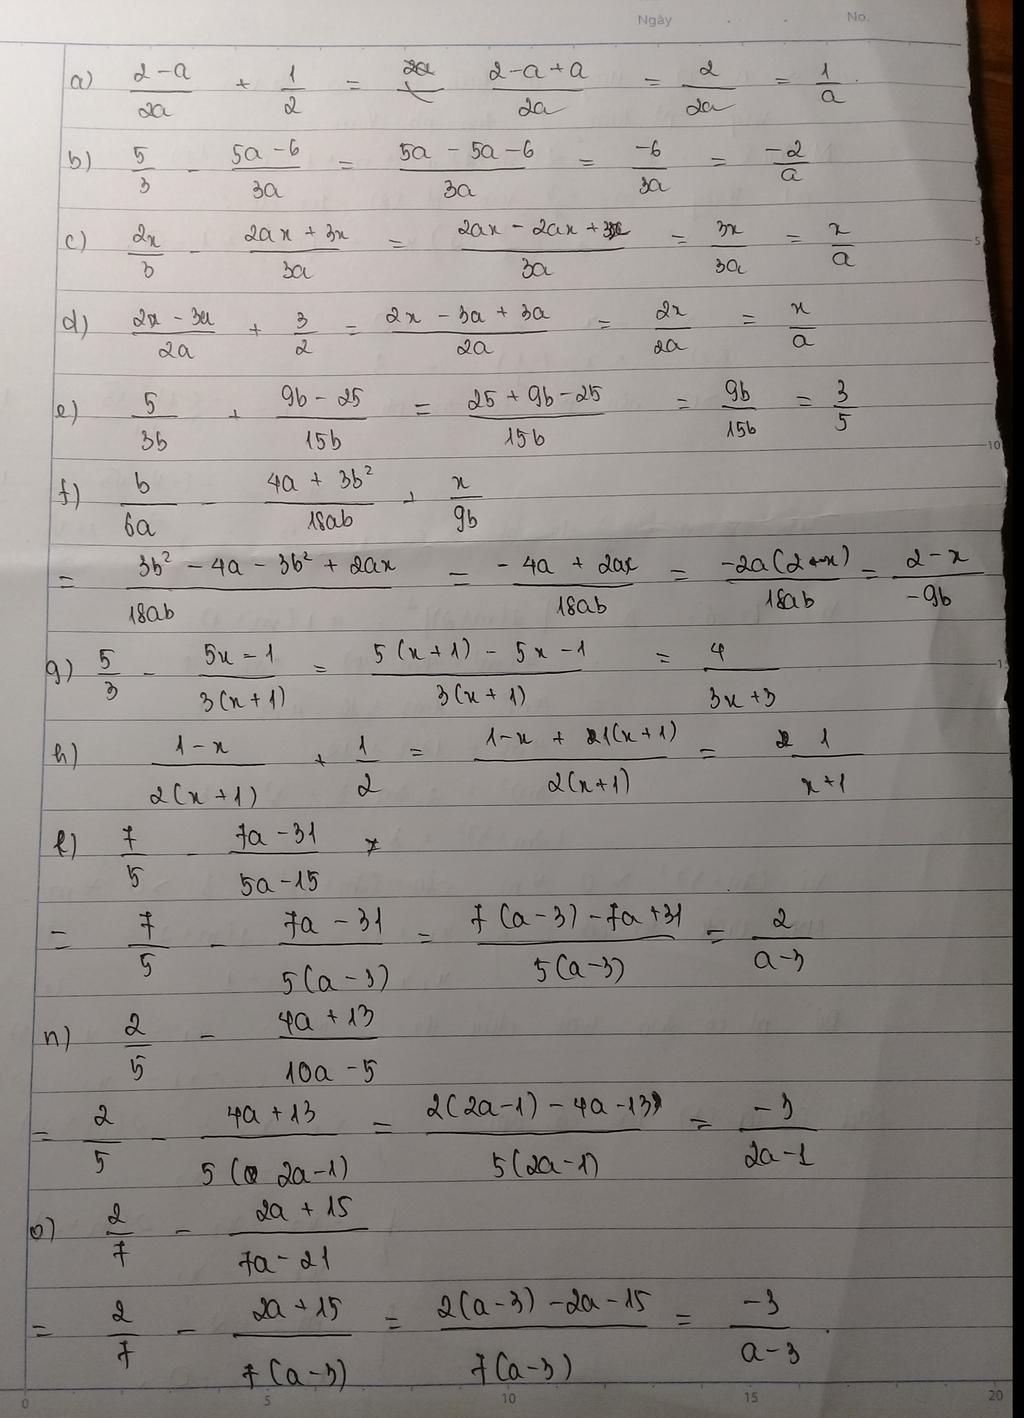 Ngày . . No.
a) (2-a)/(2a) + 1/2 = (2-a+a)/(2a) = 2/(2a) = 1/a.
b) 5/3 - (5a-6)/(3a) = (5a-5a-6)/(3a) = (-6)/(3a) = (-2)/a
c) 2x/3 - (2ax+3x)/(3a) = (2ax-2ax+3x)/(3a) = 3x/(3a) = x/a
d) (2x-3a)/(2a) + 3/2 = (2x-3a+3a)/(2a) = 2x/(2a) = x/a
e) 5/(3b) + (9b-25)/(15b) = (25+9b-25)/(15b) = 9b/(15b) = 3/5
f) b/(6a) - (4a+3b²)/(18ab) + x/(9b)
= (3b²-4a-3b²+2ax)/(18ab) = (-4a+2ax)/(18ab) = (-2a(2-x))/(18ab) = (2-x)/(-9b)
g) 5/3 - (5x-1)/(3(x+1)) = (5(x+1)-5x-1)/(3(x+1)) = 4/(3x+3)
h) (1-x)/(2(x+1)) + 1/2 = (1-x+1(x+1))/(2(x+1)) = 1/(x+1)
k) 7/5 - (7a-31)/(5a-15)
= 7/5 - (7a-31)/(5(a-3)) = (7(a-3)-7a+31)/(5(a-3)) = 2/(a-3)
n) 2/5 - (4a+13)/(10a-5)
= 2/5 - (4a+13)/(5(2a-1)) = (2(2a-1)-4a-13)/(5(2a-1)) = (-3)/(2a-1)
o) 2/7 - (2a+15)/(7a-21)
= 2/7 - (2a+15)/(7(a-3)) = (2(a-3)-2a-15)/(7(a-3)) = (-3)/(a-3).
0 5 10 15 20